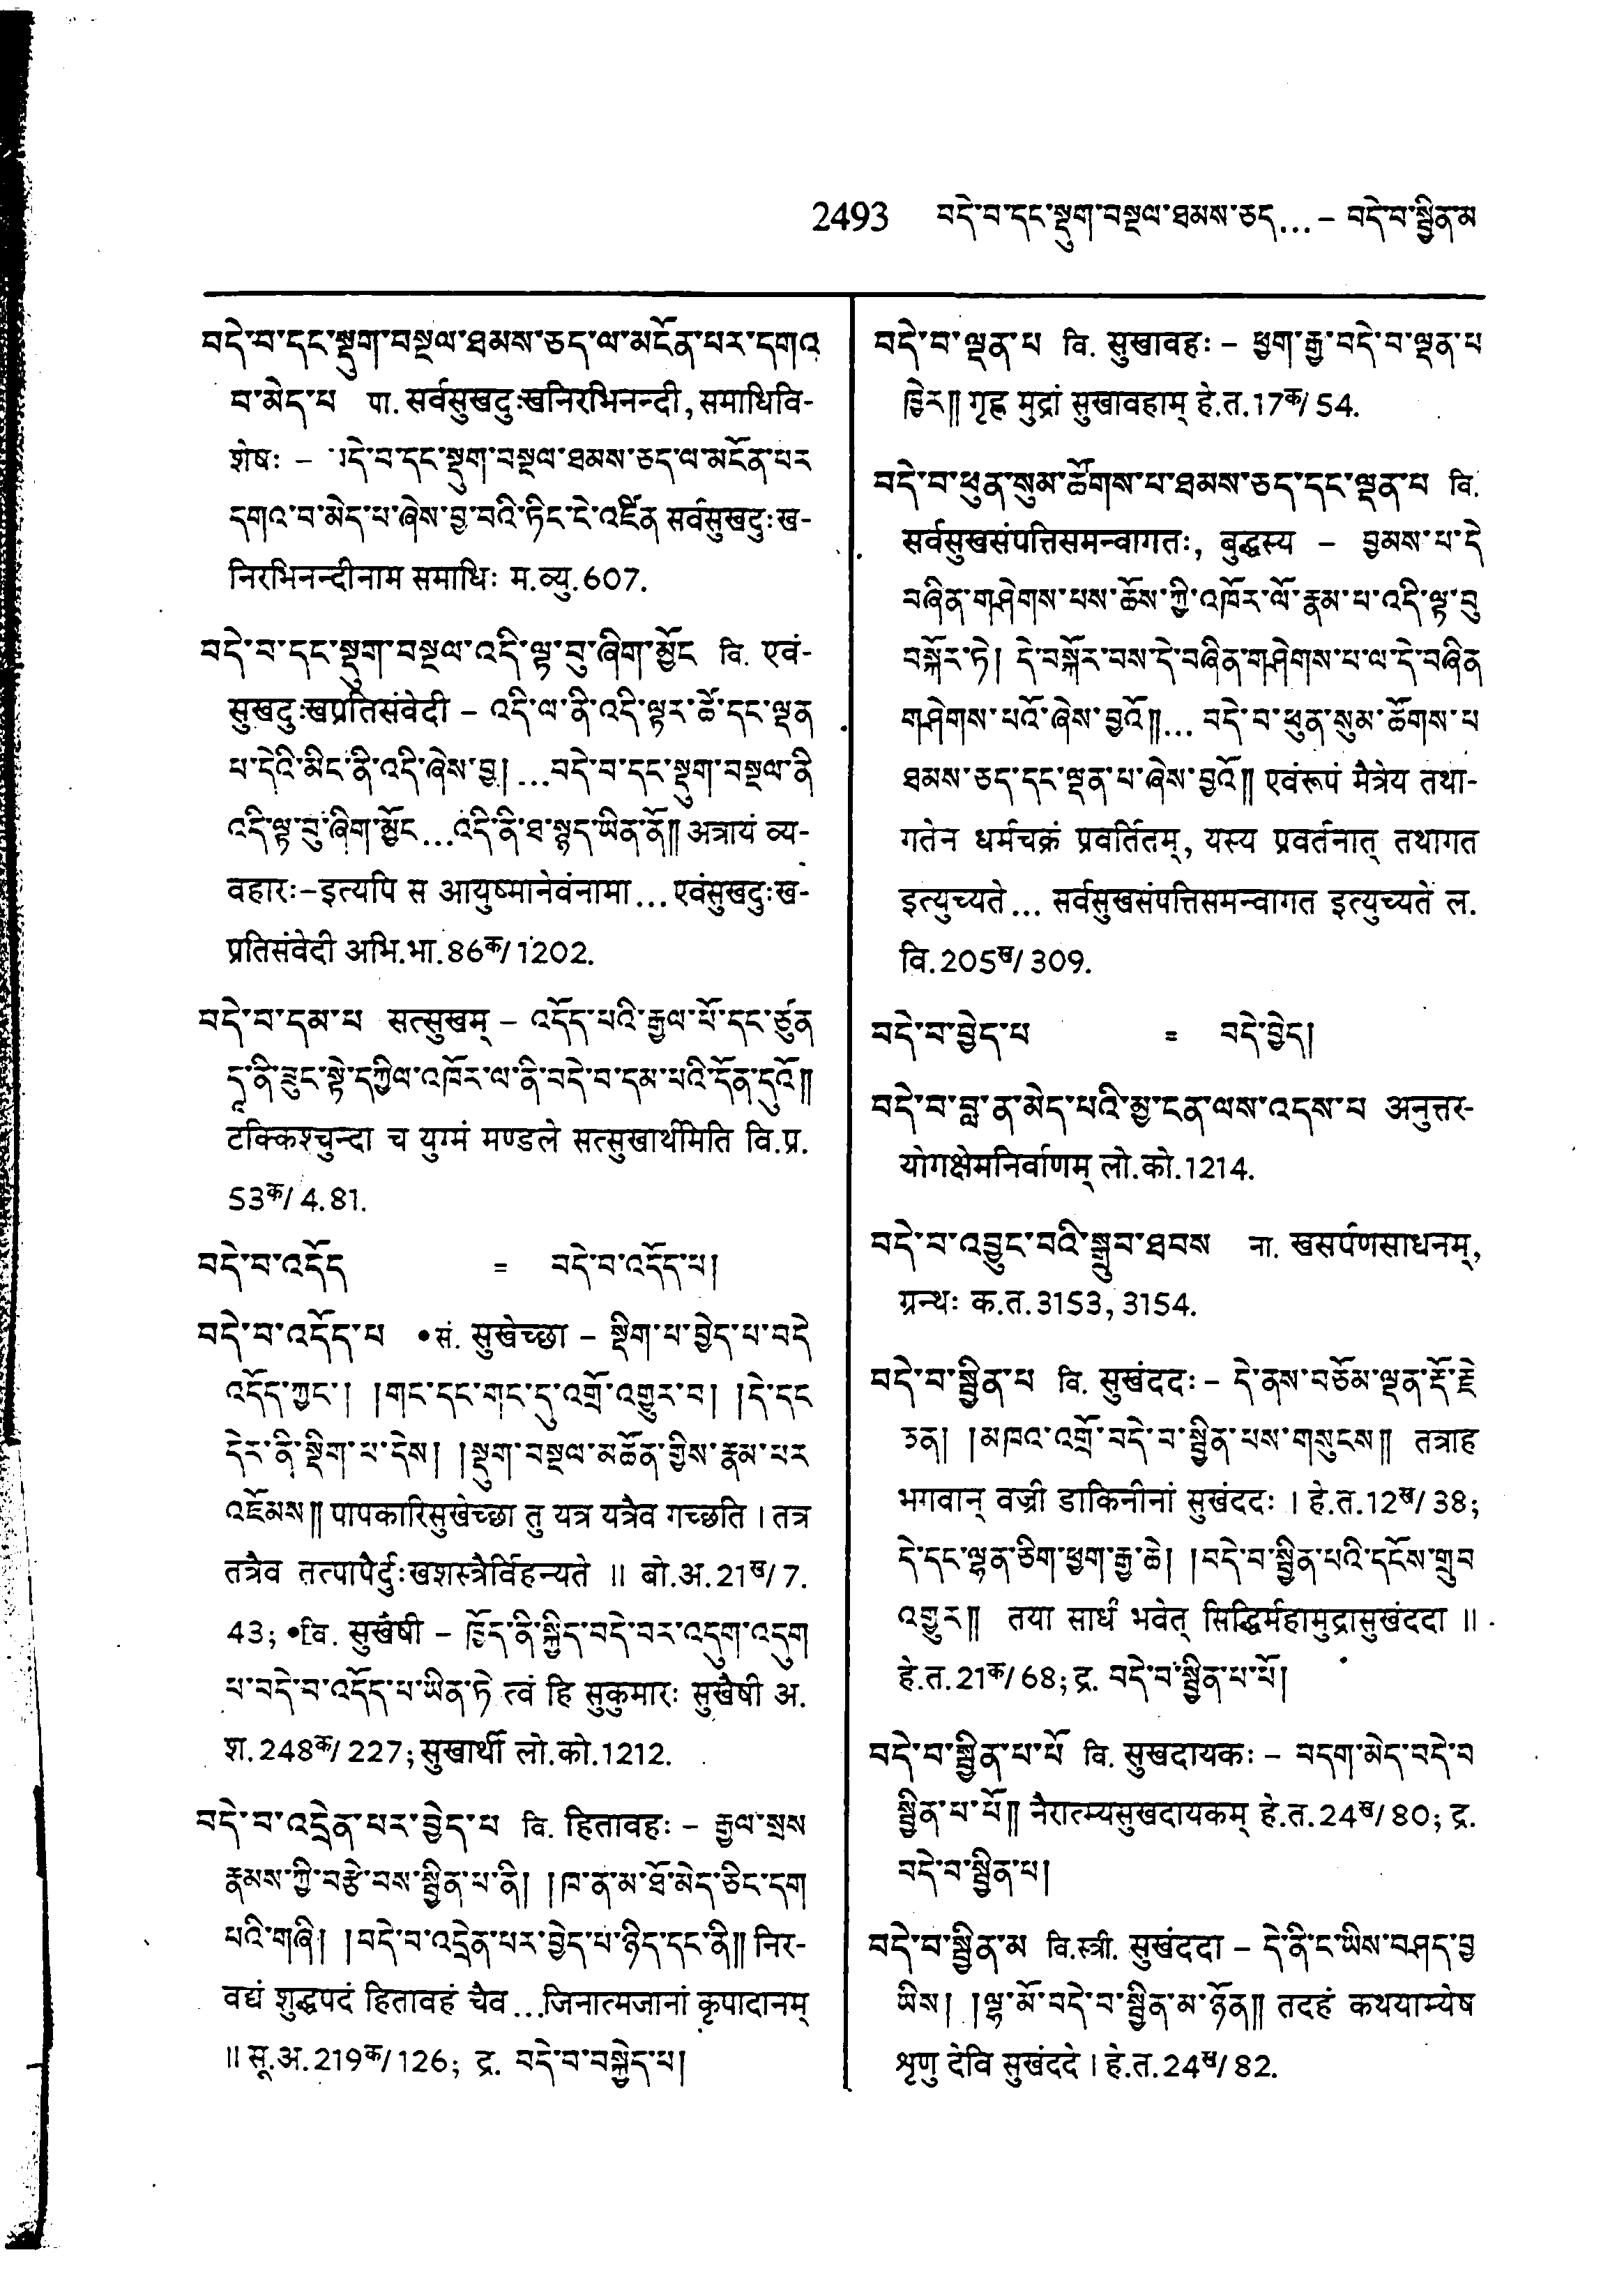 2493 བདེ་བ་དང་སྡུག་བསྔལ་ཐམས་ཅད...– བདེ་བ་སྦྱིན་མ
བདེ་བ་དང་སྡུག་བསྔལ་ཐམས་ཅད་ལ་མངོན་པར་དགའ་
བ་མེད་པ पा. सर्वसुखदुःखनिरभिनन्दी, समाधिवि-
शेषः – བདེ་བ་དང་སྡུག་བསྔལ་ཐམས་ཅད་ལ་མངོན་པར
དགའ་བ་མེད་པ་ཞེས་བྱ་བའི་ཏིང་ངེ་འཛིན सर्वसुखदुःख-
निरभिनन्दीनाम समाधिः म.व्यु.607.
བདེ་བ་དང་སྡུག་བསྔལ་འདི་ལྟ་བུ་ཞིག་མྱོང वि. एवं-
सुखदुःखप्रतिसंवेदी – འདི་ལ་ནི་འདི་ལྟར་ཚེ་དང་ལྡན
པ་དེའི་མིང་ནི་འདི་ཞེས་བྱ། ...བདེ་བ་དང་སྡུག་བསྔལ་ནི
འདི་ལྟ་བུ་ཞིག་མྱོང...འདི་ནི་ཐ་སྙད་ཡིན་ནོ༎ अत्रायं व्य-
वहारः–इत्यपि स आयुष्मानेवंनामा... एवंसुखदुःख-
प्रतिसंवेदी अभि.भा.86क/1202.
བདེ་བ་དམ་པ सत्सुखम् – འདོད་པའི་རྒྱལ་པོ་དང་ཙུན
དཱ་ནི་ཟུང་སྟེ་དཀྱིལ་འཁོར་ལ་ནི་བདེ་བ་དམ་པའི་དོན་དུའོ༎
टक्किश्चुन्दा च युग्मं मण्डले सत्सुखार्थमिति वि.प्र.
53क/4.81.
བདེ་བ་འདོད = བདེ་བ་འདོད་པ།
བདེ་བ་འདོད་པ •सं. सुखेच्छा – སྡིག་པ་བྱེད་པ་བདེ
འདོད་ཀྱང་། །གང་དང་གང་དུ་འགྲོ་འགྱུར་བ། །དེ་དང
དེར་ནི་སྡིག་པ་དེས། །སྡུག་བསྔལ་མཚོན་གྱིས་རྣམ་པར
འཇོམས༎ पापकारिसुखेच्छा तु यत्र यत्रैव गच्छति । तत्र
तत्रैव तत्पापैर्दुःखशस्त्रैर्विहन्यते ॥ बो.अ.21ख/7.
43; •वि. सुखैषी – ཁྱོད་ནི་སྐྱིད་བདེ་བར་འདུག་འདུག
པ་བདེ་བ་འདོད་པ་ཡིན་ཏེ त्वं हि सुकुमारः सुखैषी अ.
श.248क/227; सुखार्थी लो.को.1212.
བདེ་བ་འདྲེན་པར་བྱེད་པ वि. हितावहः – རྒྱལ་སྲས
རྣམས་ཀྱི་བརྩེ་བས་སྦྱིན་པ་ནི། །ཁ་ན་མ་ཐོ་མེད་ཅིང་དག
པའི་གཞི། །བདེ་བ་འདྲེན་པར་བྱེད་པ་ཉིད་དང་ནི༎ निर-
वद्यं शुद्धपदं हितावहं चैव...जिनात्मजानां कृपादानम्
॥ सू.अ.219क/126; द्र. བདེ་བ་བསྐྱེད་པ།
བདེ་བ་ལྡན་པ वि. सुखावहः – ཕྱག་རྒྱ་བདེ་བ་ལྡན་པ
ཁྱེར༎ गृह्ण मुद्रां सुखावहाम् हे.त.17क/54.
བདེ་བ་ཕུན་སུམ་ཚོགས་པ་ཐམས་ཅད་དང་ལྡན་པ वि.
सर्वसुखसंपत्तिसमन्वागतः, बुद्धस्य – བྱམས་པ་དེ
བཞིན་གཤེགས་པས་ཆོས་ཀྱི་འཁོར་ལོ་རྣམ་པ་འདི་ལྟ་བུ
བསྐོར་ཏེ། དེ་བསྐོར་བས་དེ་བཞིན་གཤེགས་པ་ལ་དེ་བཞིན
གཤེགས་པའོ་ཞེས་བྱའོ༎... བདེ་བ་ཕུན་སུམ་ཚོགས་པ
ཐམས་ཅད་དང་ལྡན་པ་ཞེས་བྱའོ༎ एवंरूपं मैत्रेय तथा-
गतेन धर्मचक्रं प्रवर्तितम्, यस्य प्रवर्तनात् तथागत
इत्युच्यते... सर्वसुखसंपत्तिसमन्वागत इत्युच्यते ल.
वि.205ख/309.
བདེ་བ་བྱེད་པ = བདེ་བྱེད།
བདེ་བ་བླ་ན་མེད་པའི་མྱ་ངན་ལས་འདས་པ अनुत्तर-
योगक्षेमनिर्वाणम् लो.को.1214.
བདེ་བ་འབྱུང་བའི་སྒྲུབ་ཐབས ना. खसर्पणसाधनम्,
ग्रन्थः क.त.3153, 3154.
བདེ་བ་སྦྱིན་པ वि. सुखंददः – དེ་ནས་བཅོམ་ལྡན་རྡོ་རྗེ
ཅན། །མཁའ་འགྲོ་བདེ་བ་སྦྱིན་པས་གསུངས༎ तत्राह
भगवान् वज्री डाकिनीनां सुखंददः । हे.त.12ख/38;
དེ་དང་ལྷན་ཅིག་ཕྱག་རྒྱ་ཆེ། །བདེ་བ་སྦྱིན་པའི་དངོས་གྲུབ
འགྱུར༎ तया सार्धं भवेत् सिद्धिर्महामुद्रासुखंददा ॥
हे.त.21क/68; द्र. བདེ་བ་སྦྱིན་པ་པོ།
བདེ་བ་སྦྱིན་པ་པོ वि. सुखदायकः – བདག་མེད་བདེ་བ
སྦྱིན་པ་པོ༎ नैरात्म्यसुखदायकम् हे.त.24ख/80; द्र.
བདེ་བ་སྦྱིན་པ།
བདེ་བ་སྦྱིན་མ वि.स्त्री. सुखंददा – དེ་ནི་ང་ཡིས་བཤད་བྱ
ཡིས། །ལྷ་མོ་བདེ་བ་སྦྱིན་མ་ཉོན༎ तदहं कथयाम्येष
शृणु देवि सुखंददे । हे.त.24ख/82.